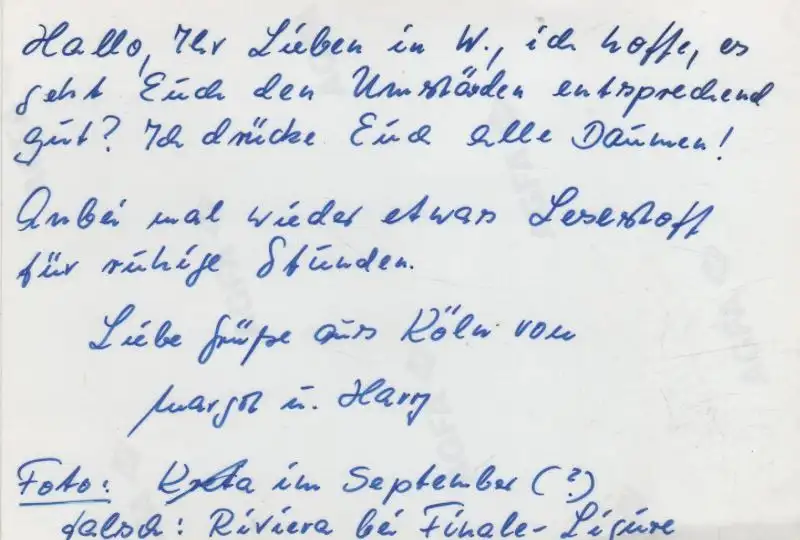 Hallo, Ihr Lieben in W., ich hoffe, es
geht Euch den Umständen entsprechend
gut? Ich drücke Euch alle Daumen!
Anbei mal wieder etwas Lesestoff
für ruhige Stunden.
Liebe Grüße aus Köln von
Margot u. Harry
Foto: Kreta im September (?)
falsch: Riviera bei Finale-Ligure